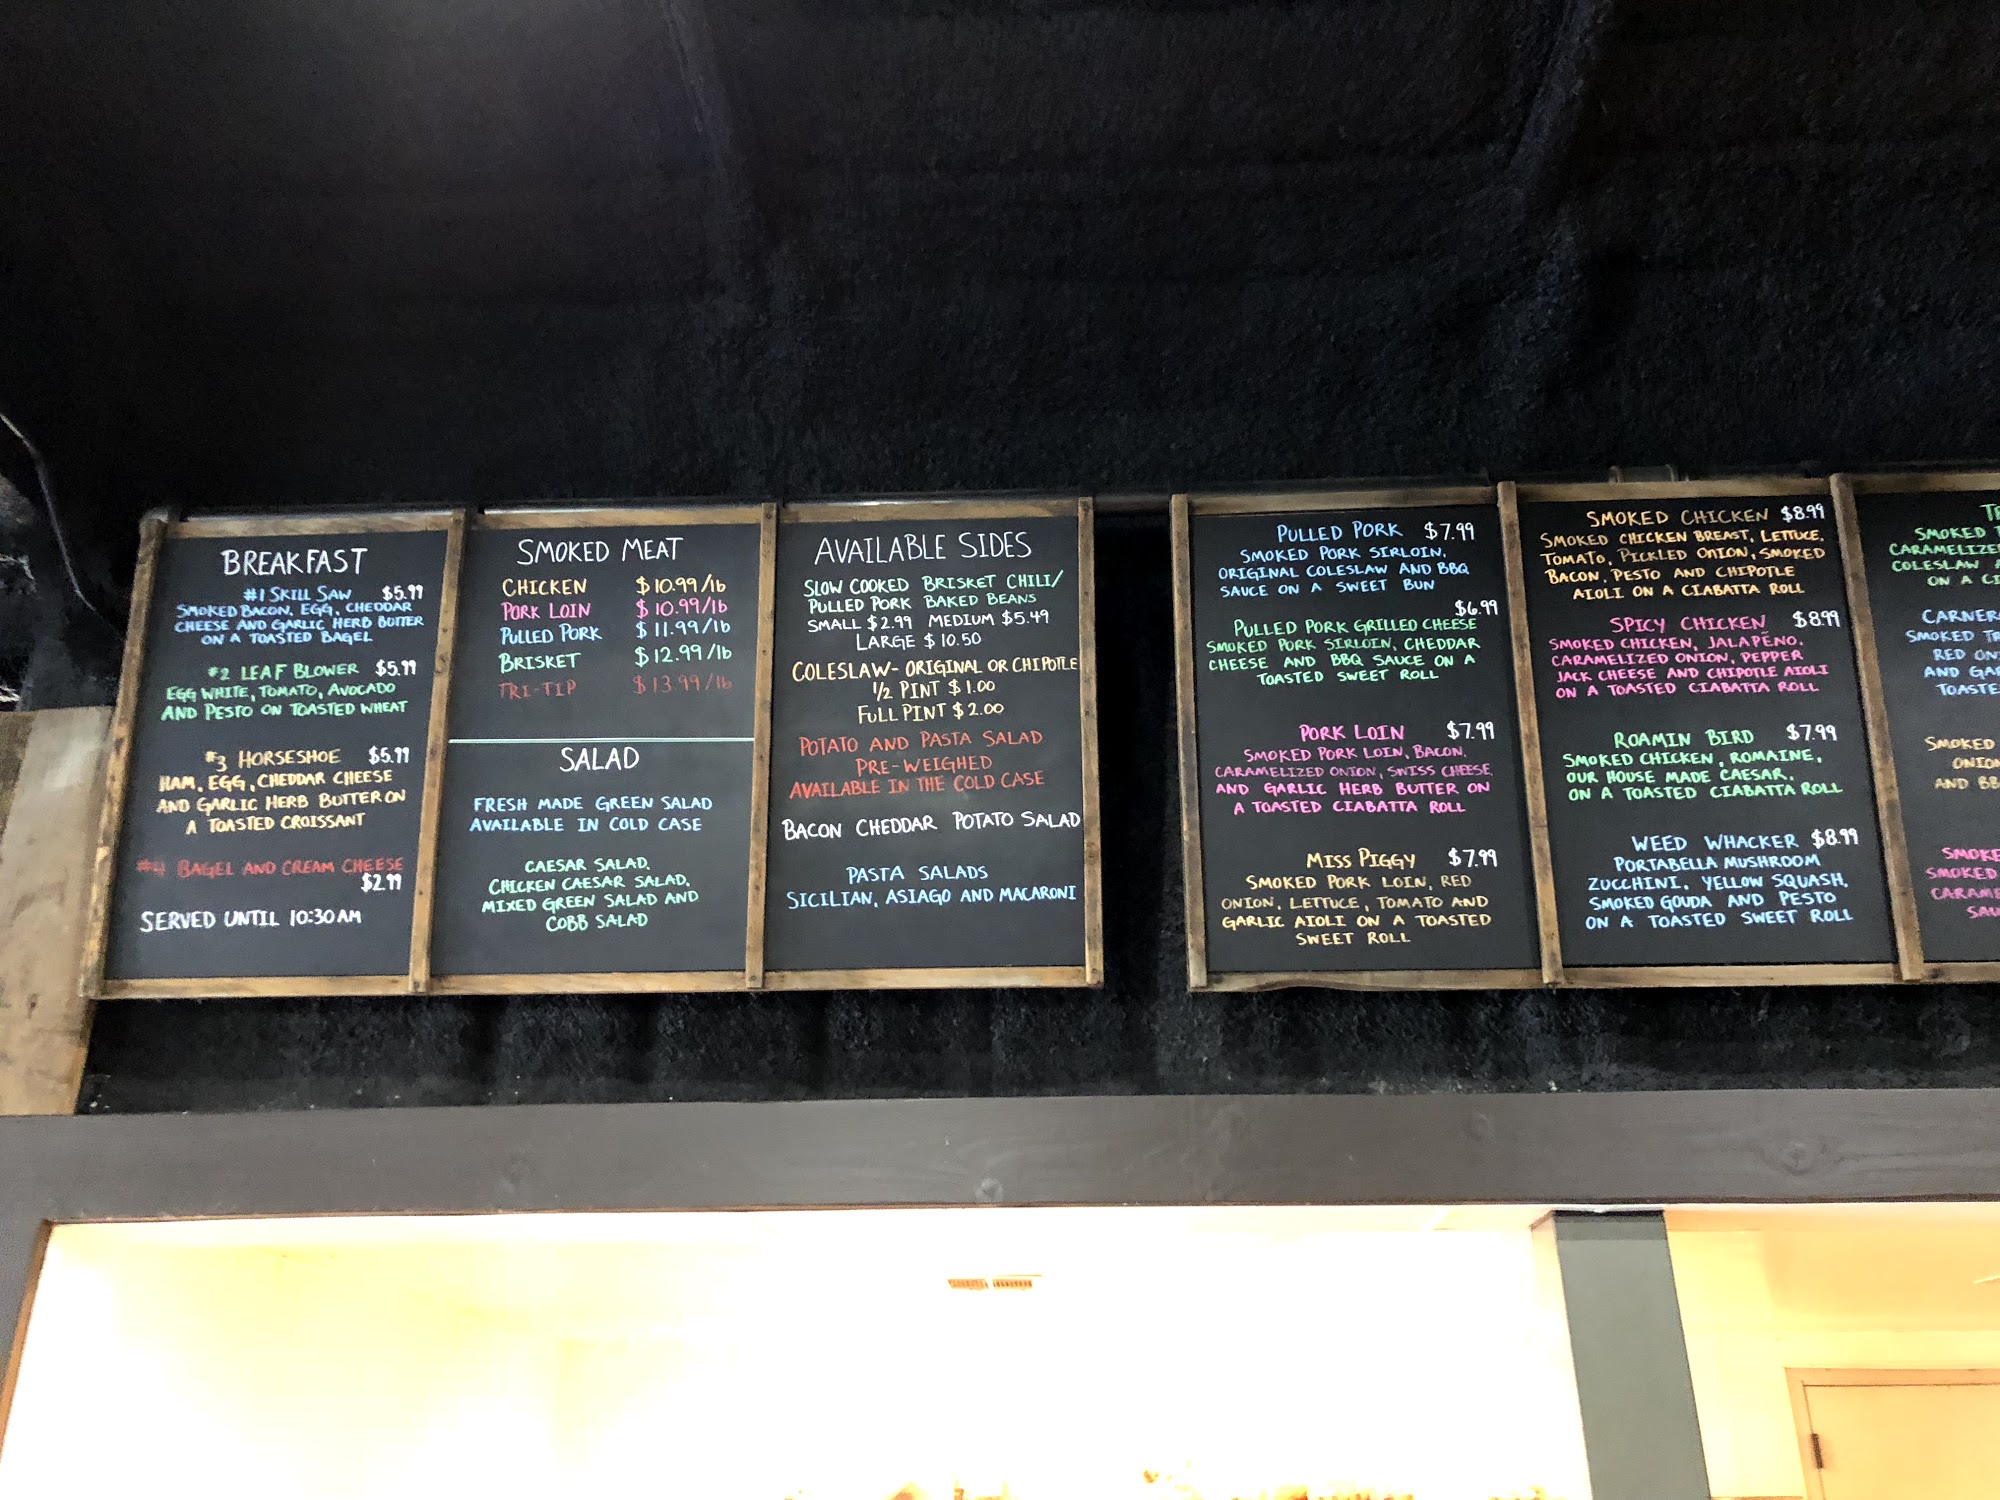 BREAKFAST
#1 SKILL SAW $5.99
SMOKED BACON, EGG, CHEDDAR
CHEESE AND GARLIC HERB BUTTER
ON A TOASTED BAGEL
#2 LEAF BLOWER $5.99
EGG WHITE, TOMATO, AVOCADO
AND PESTO ON TOASTED WHEAT
#3 HORSESHOE $5.99
HAM, EGG, CHEDDAR CHEESE
AND GARLIC HERB BUTTER ON
A TOASTED CROISSANT
#4 BAGEL AND CREAM CHEESE
$2.99
SERVED UNTIL 10:30AM
SMOKED MEAT
CHICKEN $10.99/lb
PORK LOIN $10.99/lb
PULLED PORK $11.99/lb
BRISKET $12.99/lb
TRI-TIP $13.99/lb
SALAD
FRESH MADE GREEN SALAD
AVAILABLE IN COLD CASE
CAESAR SALAD,
CHICKEN CAESAR SALAD,
MIXED GREEN SALAD AND
COBB SALAD
AVAILABLE SIDES
SLOW COOKED BRISKET CHILI/
PULLED PORK BAKED BEANS
SMALL $2.99 MEDIUM $5.49
LARGE $10.50
COLESLAW- ORIGINAL OR CHIPOTLE
1/2 PINT $1.00
FULL PINT $2.00
POTATO AND PASTA SALAD
PRE-WEIGHED
AVAILABLE IN THE COLD CASE
BACON CHEDDAR POTATO SALAD
PASTA SALADS
SICILIAN, ASIAGO AND MACARONI
PULLED PORK $7.99
SMOKED PORK SIRLOIN,
ORIGINAL COLESLAW AND BBQ
SAUCE ON A SWEET BUN
$6.99
PULLED PORK GRILLED CHEESE
SMOKED PORK SIRLOIN, CHEDDAR
CHEESE AND BBQ SAUCE ON A
TOASTED SWEET ROLL
PORK LOIN $7.99
SMOKED PORK LOIN, BACON,
CARAMELIZED ONION, SWISS CHEESE,
AND GARLIC HERB BUTTER ON
A TOASTED CIABATTA ROLL
MISS PIGGY $7.99
SMOKED PORK LOIN, RED
ONION, LETTUCE, TOMATO AND
GARLIC AIOLI ON A TOASTED
SWEET ROLL
SMOKED CHICKEN $8.99
SMOKED CHICKEN BREAST, LETTUCE,
TOMATO, PICKLED ONION, SMOKED
BACON, PESTO AND CHIPOTLE
AIOLI ON A CIABATTA ROLL
SPICY CHICKEN $8.99
SMOKED CHICKEN, JALAPEÑO,
CARAMELIZED ONION, PEPPER
JACK CHEESE AND CHIPOTLE AIOLI
ON A TOASTED CIABATTA ROLL
ROAMIN BIRD $7.99
SMOKED CHICKEN, ROMAINE,
OUR HOUSE MADE CAESAR,
ON A TOASTED CIABATTA ROLL
WEED WHACKER $8.99
PORTABELLA MUSHROOM
ZUCCHINI, YELLOW SQUASH,
SMOKED GOUDA AND PESTO
ON A TOASTED SWEET ROLL
SMOKED
COLESLAW
ON A
SMOKED
RED
AND
SMOKED
AND
SMOKED